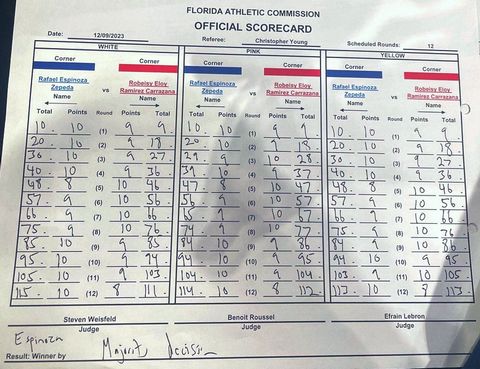 FLORIDA ATHLETIC COMMISSION
OFFICIAL SCORECARD
Date: 12/09/2023 Referee: Christopher Young Scheduled Rounds: 12
WHITE PINK YELLOW
Corner Corner Corner Corner Corner Corner
Rafael Espinoza Zepeda vs Robeisy Eloy Ramirez Carrazana Rafael Espinoza Zepeda vs Robeisy Eloy Ramirez Carrazana Rafael Espinoza Zepeda vs Robeisy Eloy Ramirez Carrazana
Name Name Name Name Name Name
Total Points Round Points Total Total Points Round Points Total Total Points Round Points Total
10 10 (1) 9 9 10 10 (1) 9 9 10 10 (1) 9 9
20 10 (2) 9 18 20 10 (2) 9 18 20 10 (2) 9 18
30 10 (3) 9 27 29 9 (3) 10 28 30 10 (3) 9 27
40 10 (4) 9 36 39 10 (4) 9 37 40 10 (4) 9 36
48 8 (5) 10 46 47 8 (5) 10 47 48 8 (5) 10 46
57 9 (6) 10 56 56 9 (6) 10 57 57 9 (6) 10 56
66 9 (7) 10 66 65 9 (7) 10 67 66 9 (7) 10 66
75 9 (8) 10 76 74 9 (8) 10 77 75 9 (8) 10 76
85 10 (9) 9 85 84 10 (9) 9 86 84 9 (9) 10 86
95 10 (10) 9 94 94 10 (10) 9 95 94 10 (10) 9 95
105 10 (11) 9 103 104 10 (11) 9 104 103 9 (11) 10 105
115 10 (12) 8 111 114 10 (12) 8 112 113 10 (12) 8 113
Steven Weisfeld Benoit Roussel Efrain Lebron
Judge Judge Judge
Espinoza Majority Decision
Result: Winner by